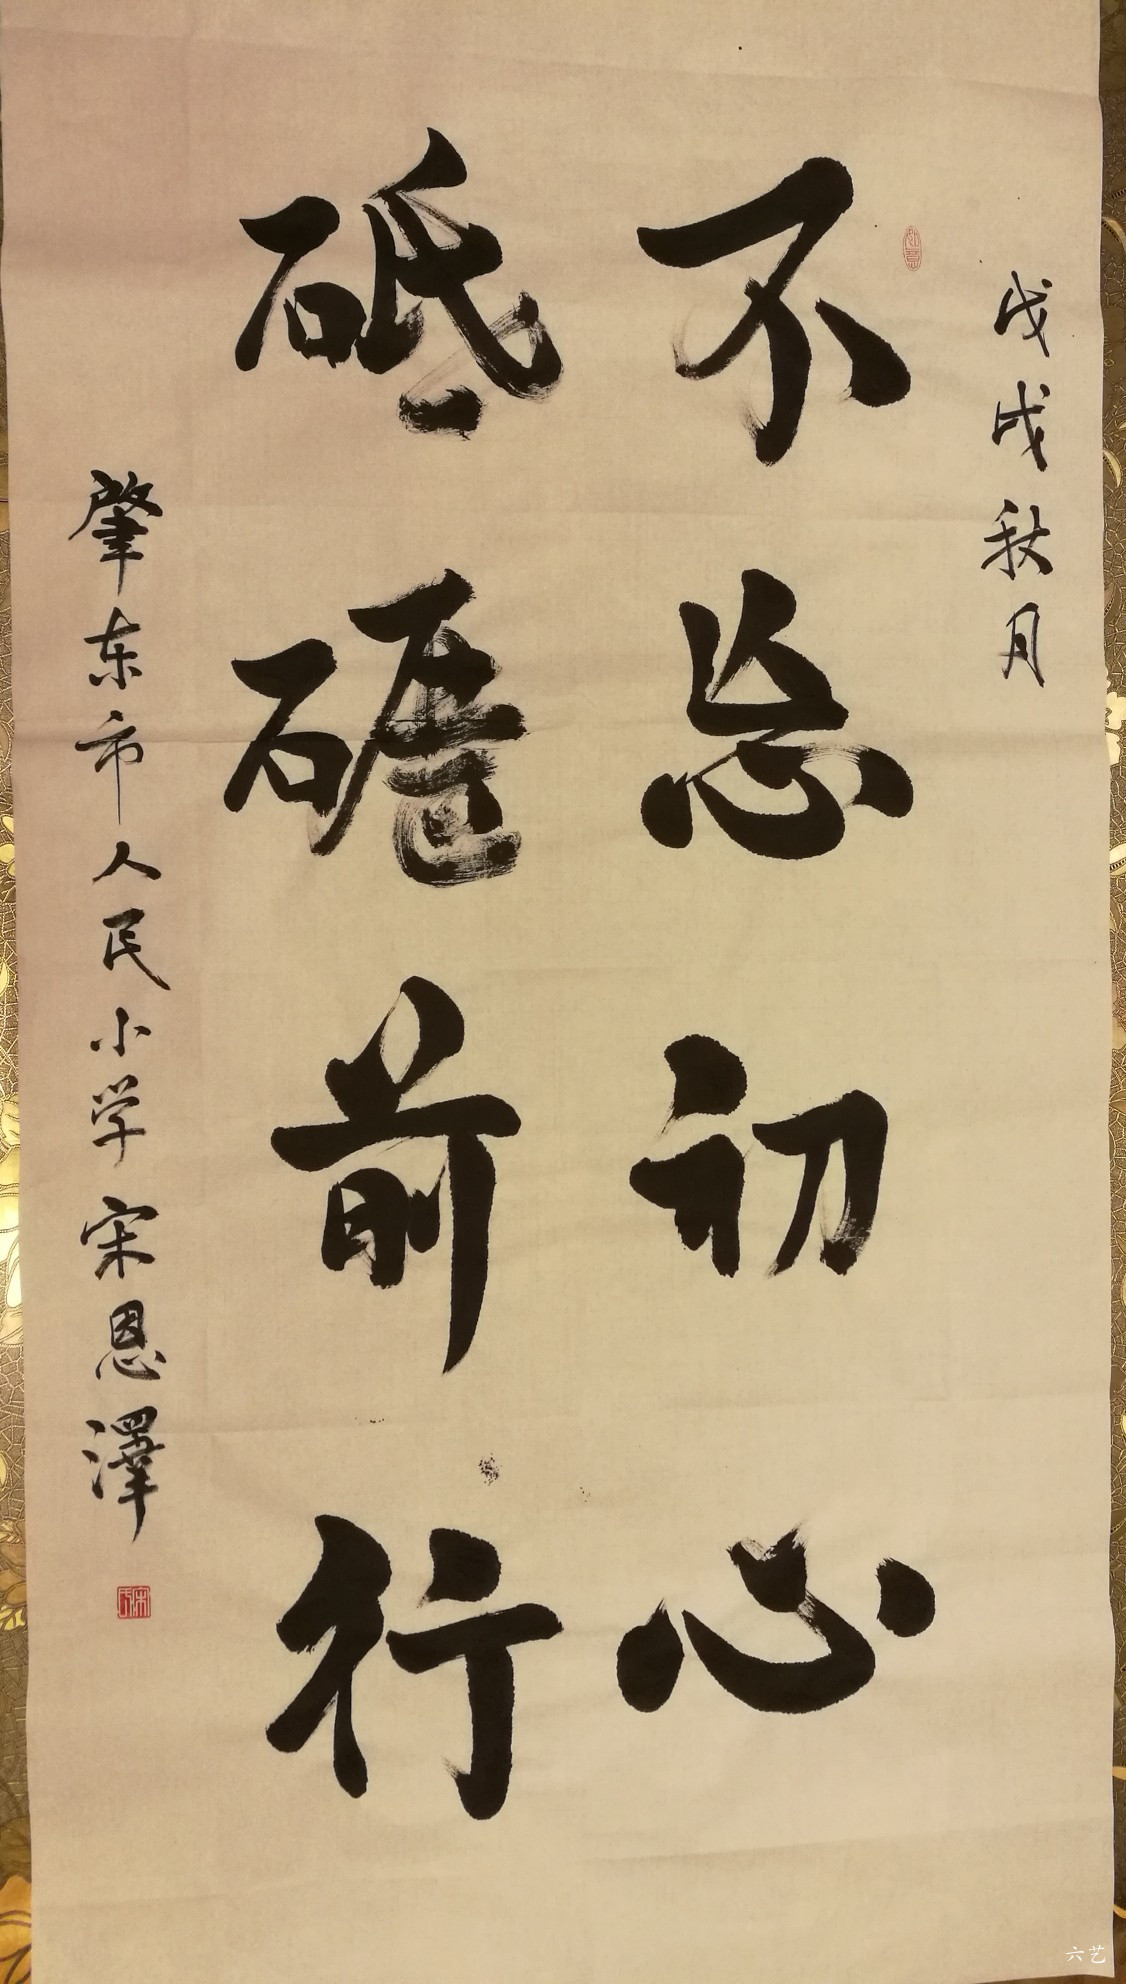 戊戌秋月
不忘初心
砥砺前行
肇东市人民小学宋恩澤
六艺